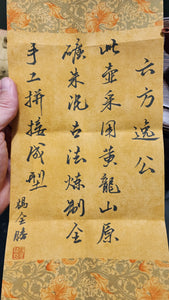 六方逸公
此壶采用黄龙山原
矿朱泥古法炼制全
手工拼接成型
杨全勝